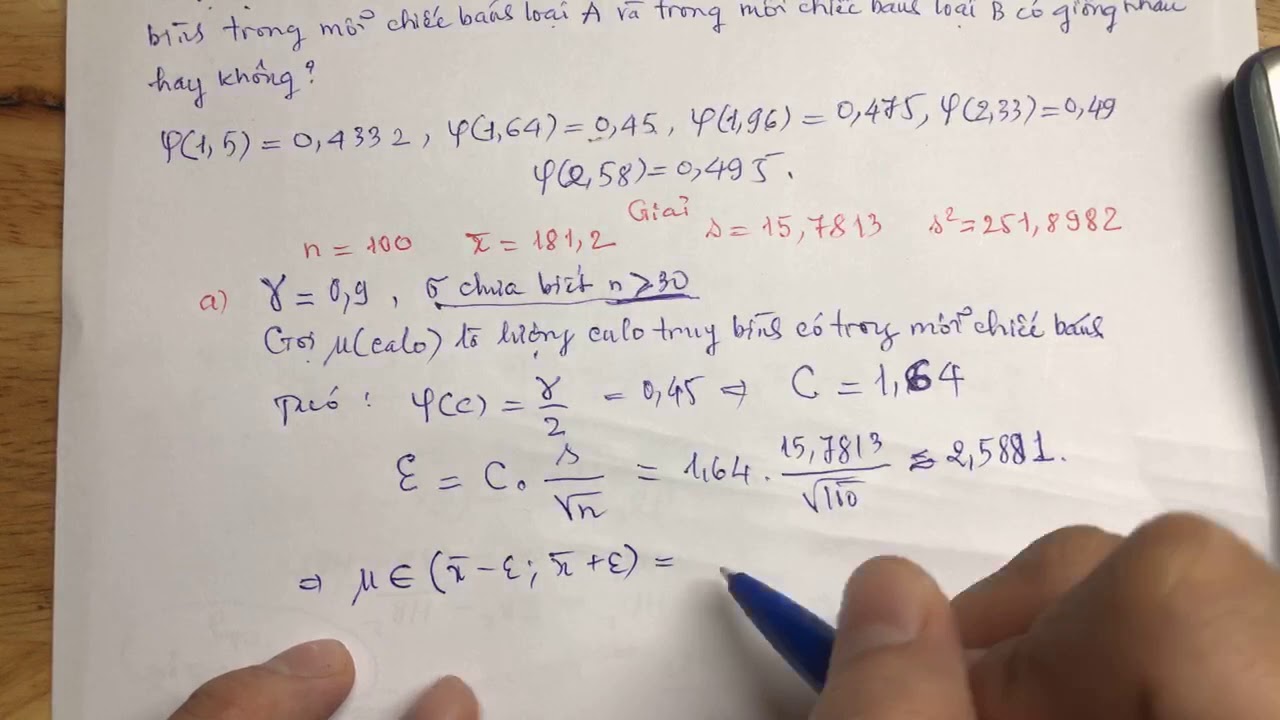 bình trong mỗi chiếc bánh loại A và trong mỗi chiếc bánh loại B có giống nhau
hay không?
φ(1,5) = 0,4332, φ(1,64) = 0,45, φ(1,96) = 0,475, φ(2,33) = 0,49
φ(2,58) = 0,495.
Giải
n = 100 x̄ = 181,2 s = 15,7813 s² = 251,8982
a) γ = 0,9, σ chưa biết n ≥ 30
Gọi μ(calo) là lượng calo trung bình có trong mỗi chiếc bánh
: φ(c) = γ/2 = 0,45 ⇒ C = 1,64
ε = C. s/√n = 1,64 . 15,7813/√100 ≈ 2,5881.
⇒ μ ∈ (x̄ - ε; x̄ + ε) =